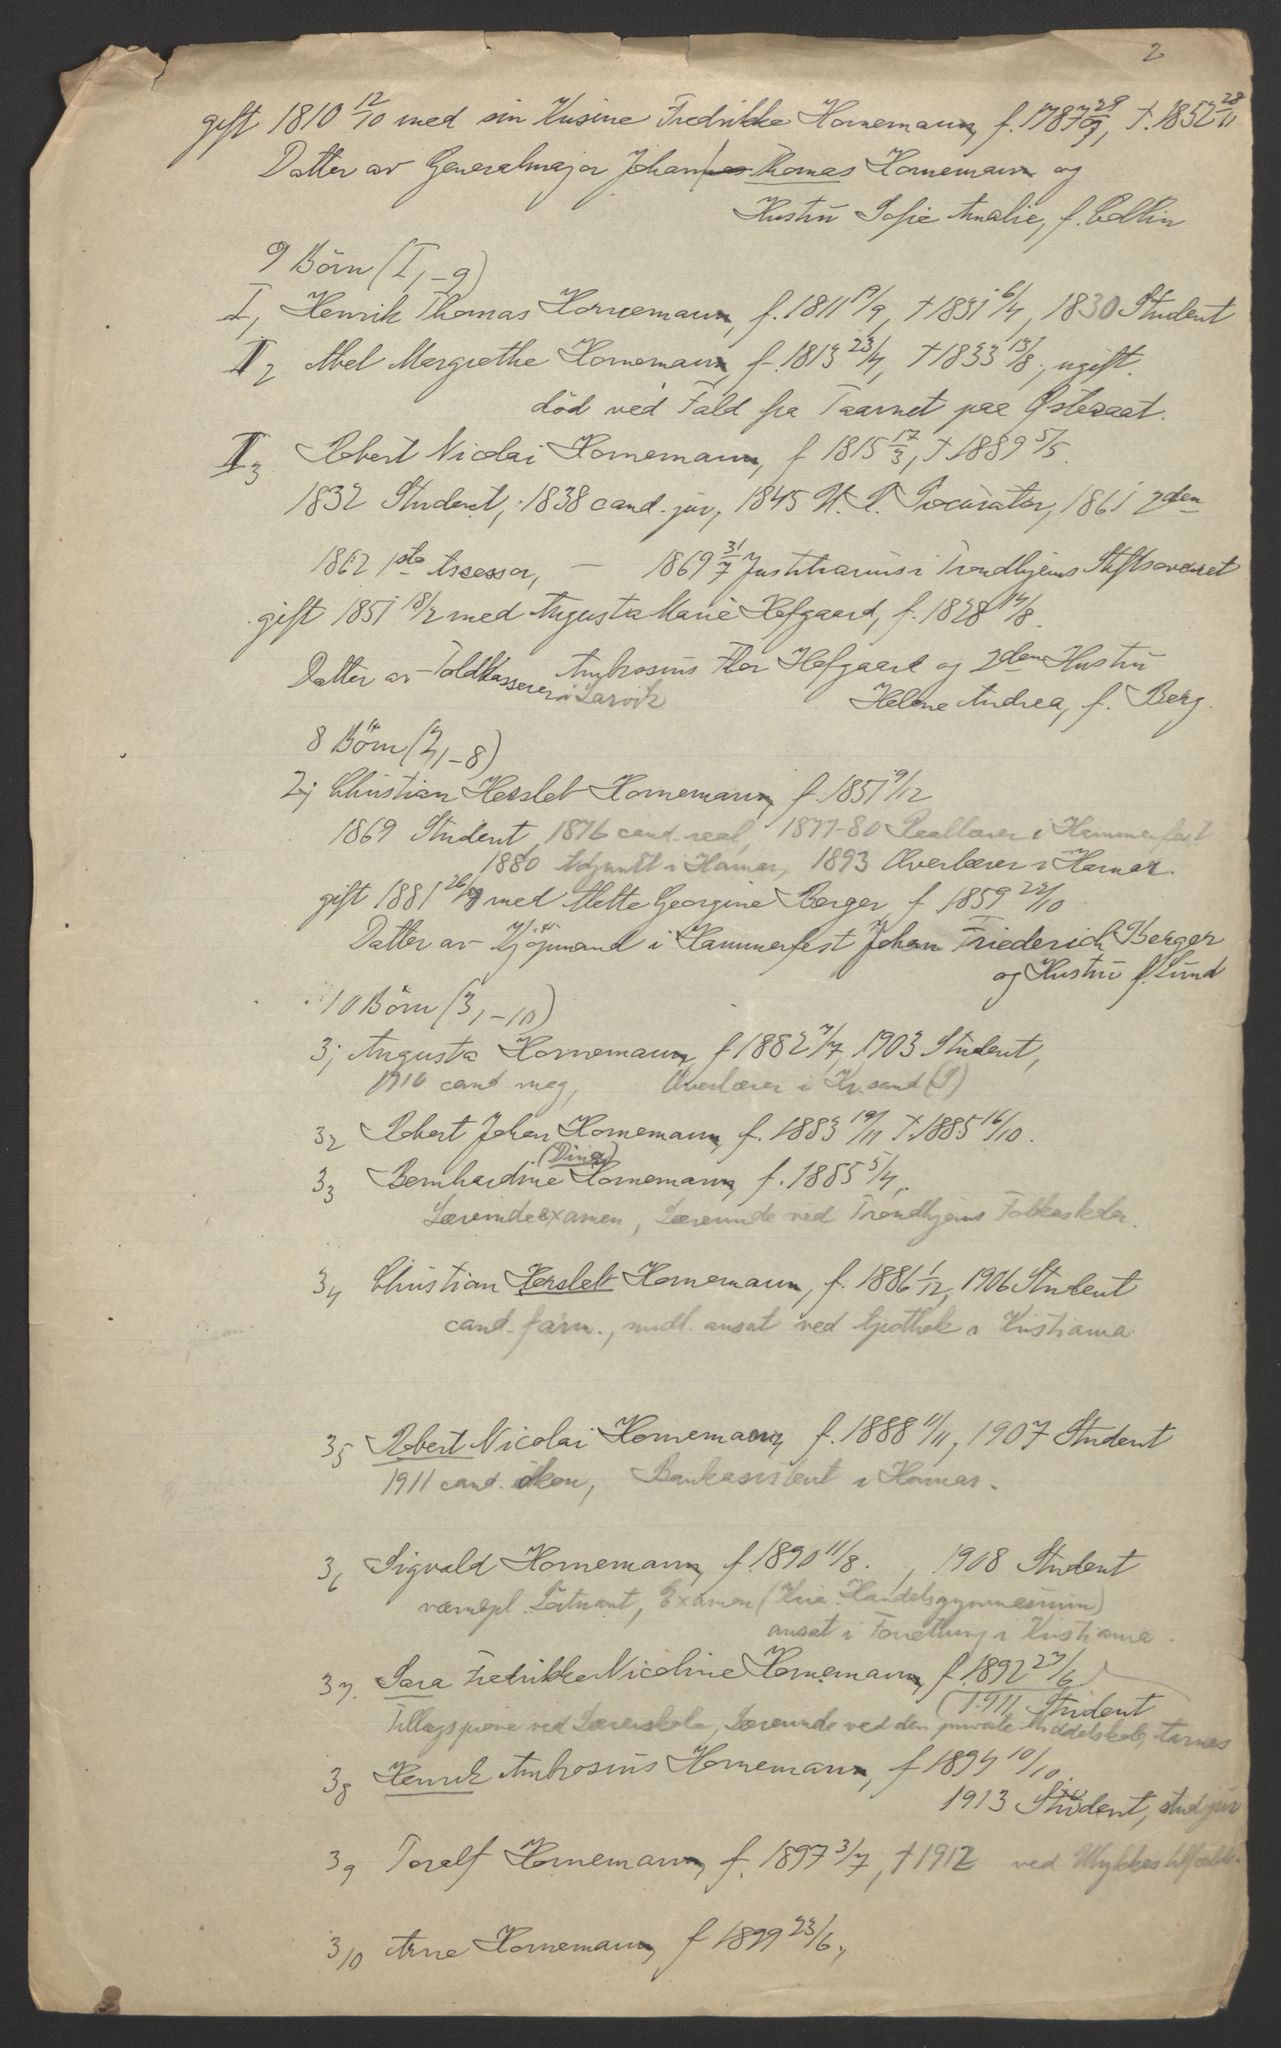 2
gift 1810 12/10 med sin Kusine Fredrikke Hornemann, f. 1787 29/9, †. 1852 28/11
Datter av Generalmajor Johan Thomas Hornemann og
Hustru Sofie Amalie, f. Collin
9 Börn (I, -9)
I, Henrik Thomas Hornemann, f. 1811 19/9, † 1831 6/4, 1830 Student
I2 Abel Margrethe Hornemann, f. 1813 23/4, † 1833 13/8, ugift.
död ved Fald fra Taarnet paa Østeraat.
I3 Robert Nicolai Hornemann, f 1815 17/3, † 1889 5/5.
1832 Student, 1838 cand. jur, 1845 Procurator, 1861 2den
1862 1ste Assessor, — 1869 31/7 Justitiarius i Trondhjems Stiftsoverret
gift 1851 18/2 med Augusta Marie Hofgaard, f. 1828 14/8.
Datter av Toldkasserer i Larvik Ambrosius Flor Hofgaard og 2den Hustru
Helene Andrea, f. Berg.
8 Börn (2, -8)
2, Christian Hersleb Hornemann, f. 1851 9/12
1869 Student, 1876 cand. real, 1877-80 Reallærer i Hammerfest
1880 Adjunkt i Hamar, 1893 Overlærer i Hamar.
gift 1881 med Mette Georgine Berger, f. 1859 22/10
Datter av Kjöpmand i Hammerfest Johan Friederich Berger
og Hustru f. Lund
10 Börn (3, -10)
3, Augusta Hornemann, f 1882 7/7, 1903 Student,
1910 cand. mag, Overlærer i Kr.sand (S)
32 Robert Johan Hornemann, f. 1883 19/11 †. 1885 16/10.
33 Bernhardine (Dina) Hornemann, f. 1885 5/4,
Lærerindeexamen, Lærerinde ved Trondhjems Folkeskoler.
34 Christian Hersleb Hornemann, f. 1886 1/12, 1906 Student
cand. farm., midl. ansat ved Apothek i Kristiania
35 Robert Nicolai Hornemann, f. 1888 11/11, 1907 Student
1911 cand. ökon, Bankassistent i Hamar.
36 Sigvald Hornemann, f. 1890 11/8. , 1908 Student
vernepl. Löitnant, Examen (Kria Handelsgymnasium)
ansat i Forretning i Kristiania.
37. Sara Fredrikke Nicoline Hornemann, f. 1892 27/6
1911 Student
Tillægspröve ved Lærerskole, Lærerinde ved den private Middelskole,
38 Henrik Ambrosius Hornemann, f 1894 10/10.
1913 Student, stud jur
39 Toralf Hornemann, f. 1897 3/7, † 1912 ved Ulykkestilfælde.
310 Arne Hornemann, f 1899 23/6,